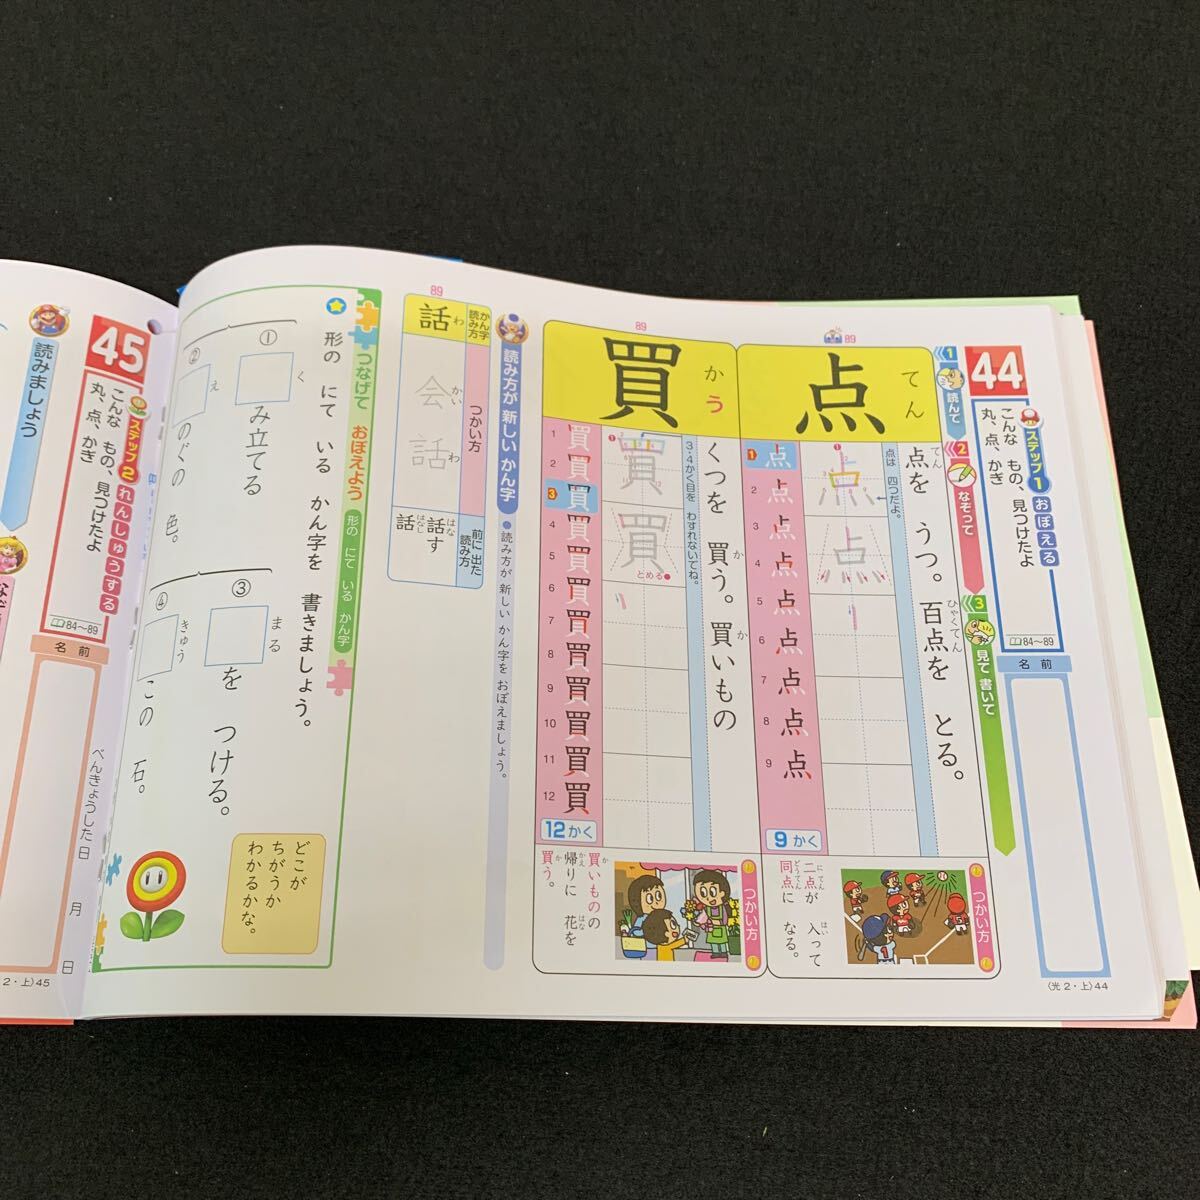 44
ステップ1 おぼえる
こんな もの、見つけたよ
丸、点、かぎ
84〜89
名前
〈光2・上〉44
1 読んで
2 なぞって
3 見て 書いて
89
点
てん
点を うつ。百点を とる。
てん
ひゃくてん
点は 四つだよ。
1 点
2 点
3 点
4 点
5 点
6 点
7 点
8 点
9 点
9かく
つかい方
二点が 入って
にてん
はい
同点に なる。
どうてん
89
買
かう
くつを 買う。買いもの
か
か
3・4かく目を わすれないでね。
とめる
1 買
2 買
3 買
4 買
5 買
6 買
7 買
8 買
9 買
10 買
11 買
12 買
12かく
つかい方
買いものの
か
帰りに 花を
かえ
はな
買う。
か
読み方が 新しい かん字
●読み方が 新しい かん字を おぼえましょう。
89
かん字 読み方
つかい方
前に 出た 読み方
話
わ
会話
かい
わ
話す
はな
話
はなし
つなげて おぼえよう
形の にて いる かん字
形の にて いる かん字を 書きましょう。
①
く
み立てる
②
え
のぐの 色。
③
まる
を つける。
④
きゅう
この 石。
どこが
ちがうか
わかるかな。
45
ステップ2 れんしゅうする
こんな もの、見つけたよ
丸、点、かぎ
84〜89
名前
べんきょうした日 月 日
読みましょう
2・上〉45